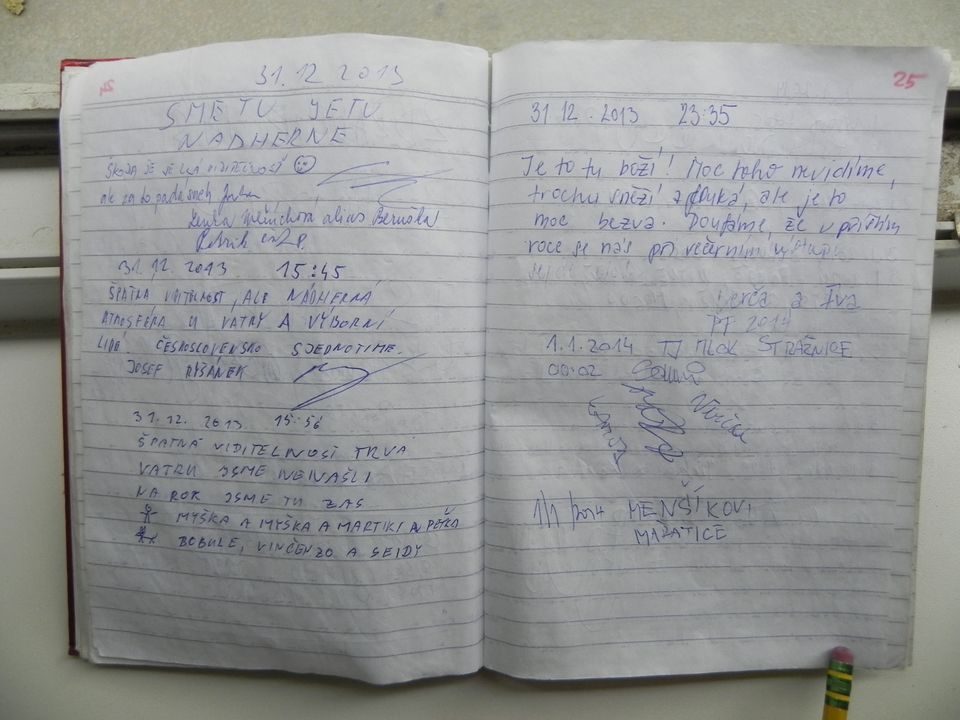 31.12 2013
SME TU JE TU
NADHERNE
ŠKODA JE VIDITELNOSŤ
ale za to padá sneh
alias Beruška
31.12.2013 15:45
ŠPATNÁ VIDITELNOST, ALE NÁDHERNÁ
ATMOSFÉRA U VATRY A VÝBORNÍ
LIDÉ ČESKOSLOVENSKO SJEDNOTIME.
JOSEF RYŠÁNEK
31.12. 2013 15:56
ŠPATNÁ VIDITELNOST TRVÁ
VATRU JSME NENAŠLI
NA ROK JSME TU ZAS
MYŠKA A MYŠKA A MARTIKI A PEŤKA
BOBULE, VINČENZO A SEIDY
25
31 12. 2013 23:35
Je to tu boží! Moc toho nevidíme,
trochu sněží a fouká, ale je to
moc bezva. Doufáme, že v příštím
roce se nás při večerním výstupu
a Iva
PF 2014
1.1.2014 TJ MLOK STRÁŽNICE
00:02
1/1 2014 MENŠÍKOVI
MAŘATICE